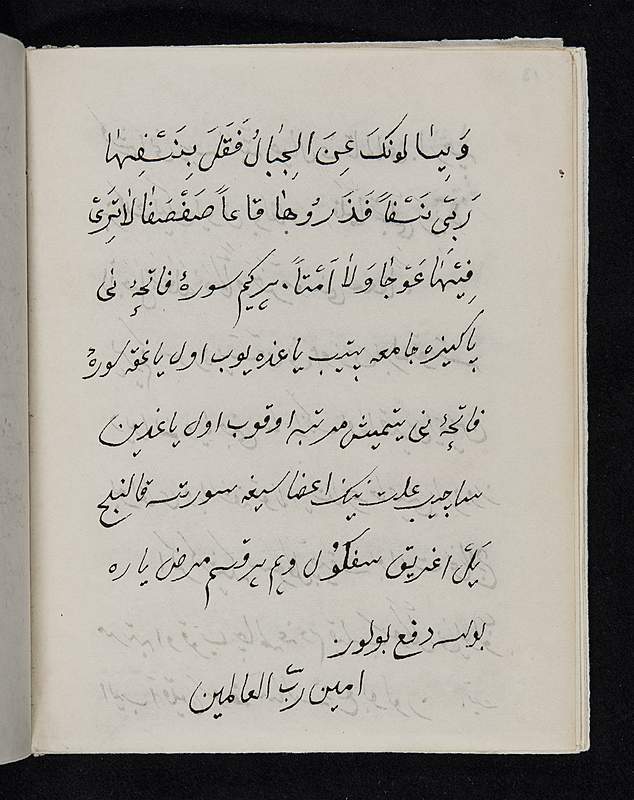 وَيَسٰالونكَ عَنِ الجِبٰالُ فَقَلَ يِنَسْفِهٰا
رَبّى نَسْفاً فَذَرُوهٰا قاعاً صَفْصَفٰا لاٰترَىْ
فِيْهٰا عَوَجٰا وَلاٰ اَمْتاً. هركيم سورهٔ فاتحهٔ نى
پاكيزه جامعه بيتيب ياغده يوب اول ياغقه سورهٔ
فاتحهٔ نى يتميش مرتبه اوقوب اول ياغدين
ساچيب علت نينك اعضاسيغه سورتسه قالنج
يَلْ اغريق سفكوْل وهم هر قسم مرض ياره
بولسه دفع بولور
امين ربّ العالمين